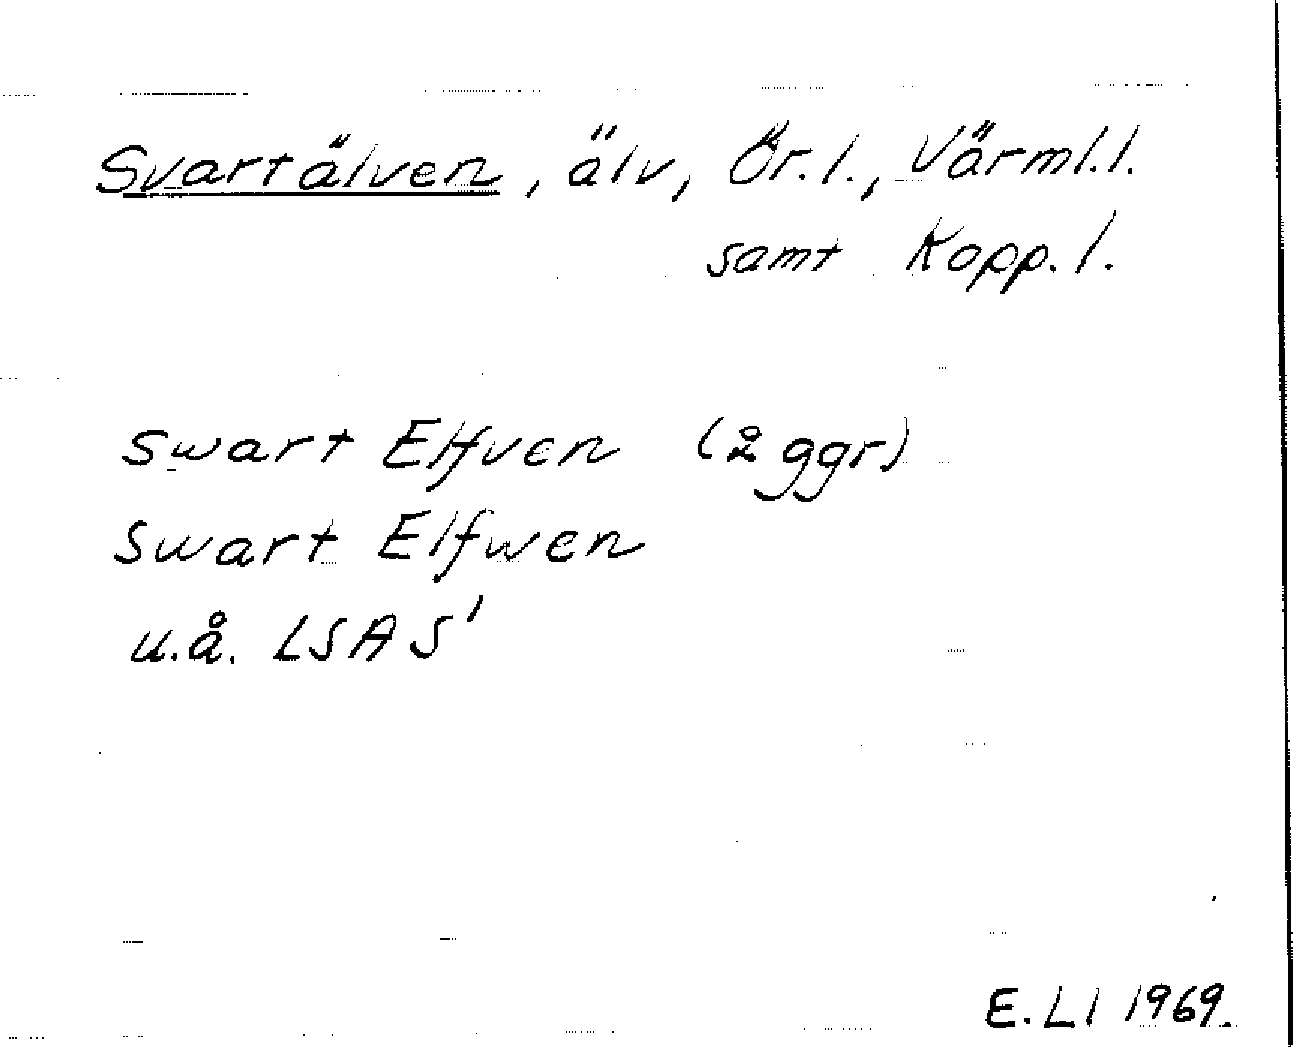 Svartälven, älv, Ör.l., Värml.l.
samt Kopp.l.
Swart Elfven (2 ggr)
Swart Elfwen
u.å. LSAS'
E.Ll 1969.